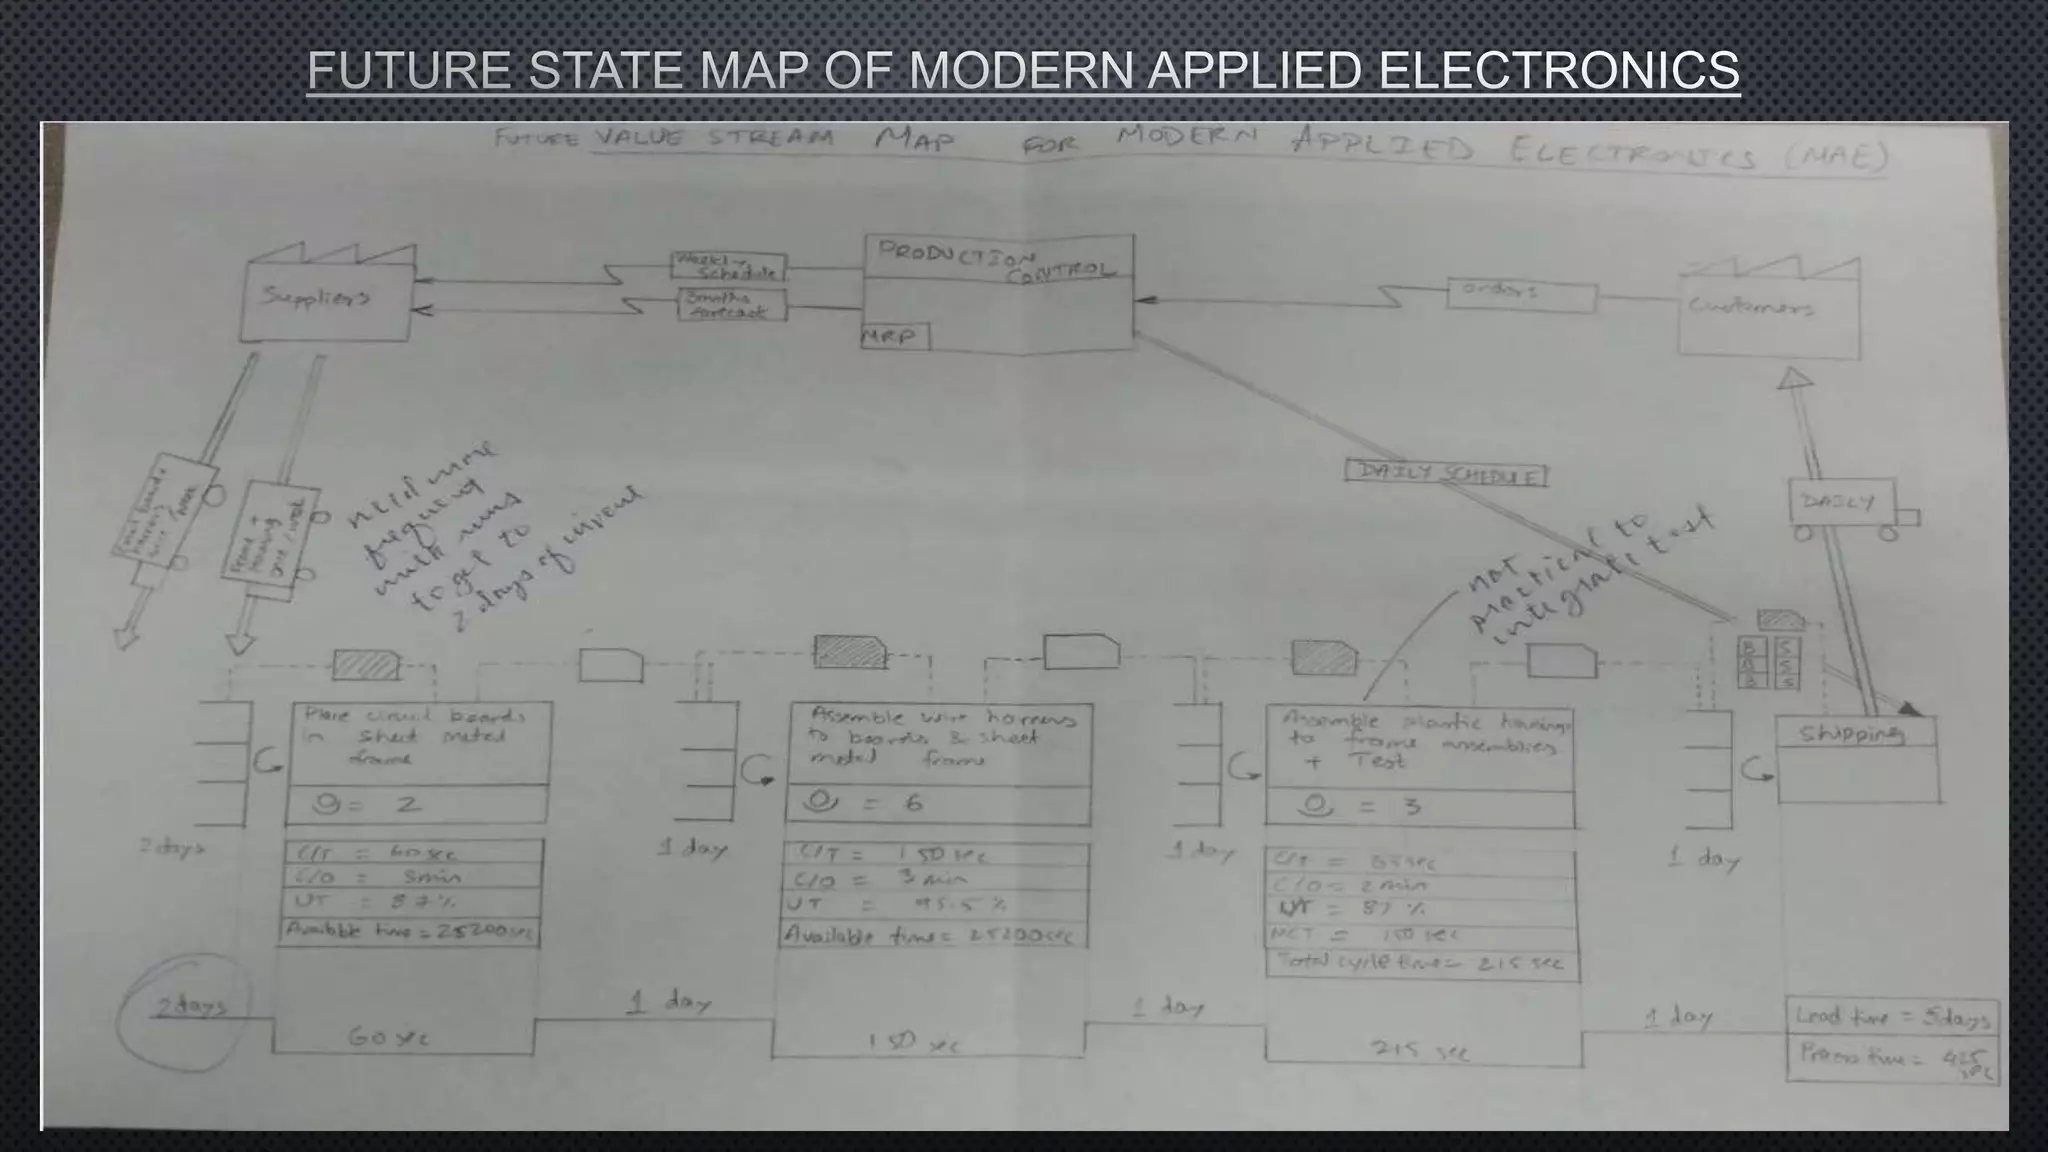 FUTURE STATE MAP OF MODERN APPLIED ELECTRONICS
FUTURE VALUE STREAM MAP FOR MODERN APPLIED ELECTRONICS (MAE)
Suppliers
Weekly
Schedule
3months
PRODUCTION
CONTROL
MRP
orders
Customers
boards
twice / week
Frame +
housing
DAILY SCHEDULE
DAILY
need more
frequent
milk runs
to get to
2 days of
not
practical to
integrate test
B S
B S
B S
Place circuit boards
in sheet metal
frame
= 2
Assemble wire harness
to boards & sheet
metal frame
= 6
Assemble plastic housings
to frame assemblies
+ Test
= 3
Shipping
2 days
1 day
1 day
1 day
C/T = 60 sec
C/O = min
UT = 87%
Available time = 25200 sec
C/T = 150 sec
C/O = 3 min
UT = 95.5 %
Available time = 25200 sec
C/T = sec
C/O = 2 min
UT = 87 %
MCT = 150 sec
Total cycle time = 215 sec
2 days
60 sec
1 day
150 sec
1 day
215 sec
1 day
Lead time = 5 days
Process time = 425
sec